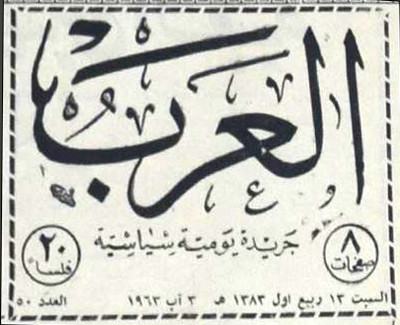 العرب
جريدة يومية سياسية
٨ صفحات
٢٠ فلساً
السبت ١٣ ربيع اول ١٣٨٣ هـ ٣ آب ١٩٦٣ العدد ٥٠